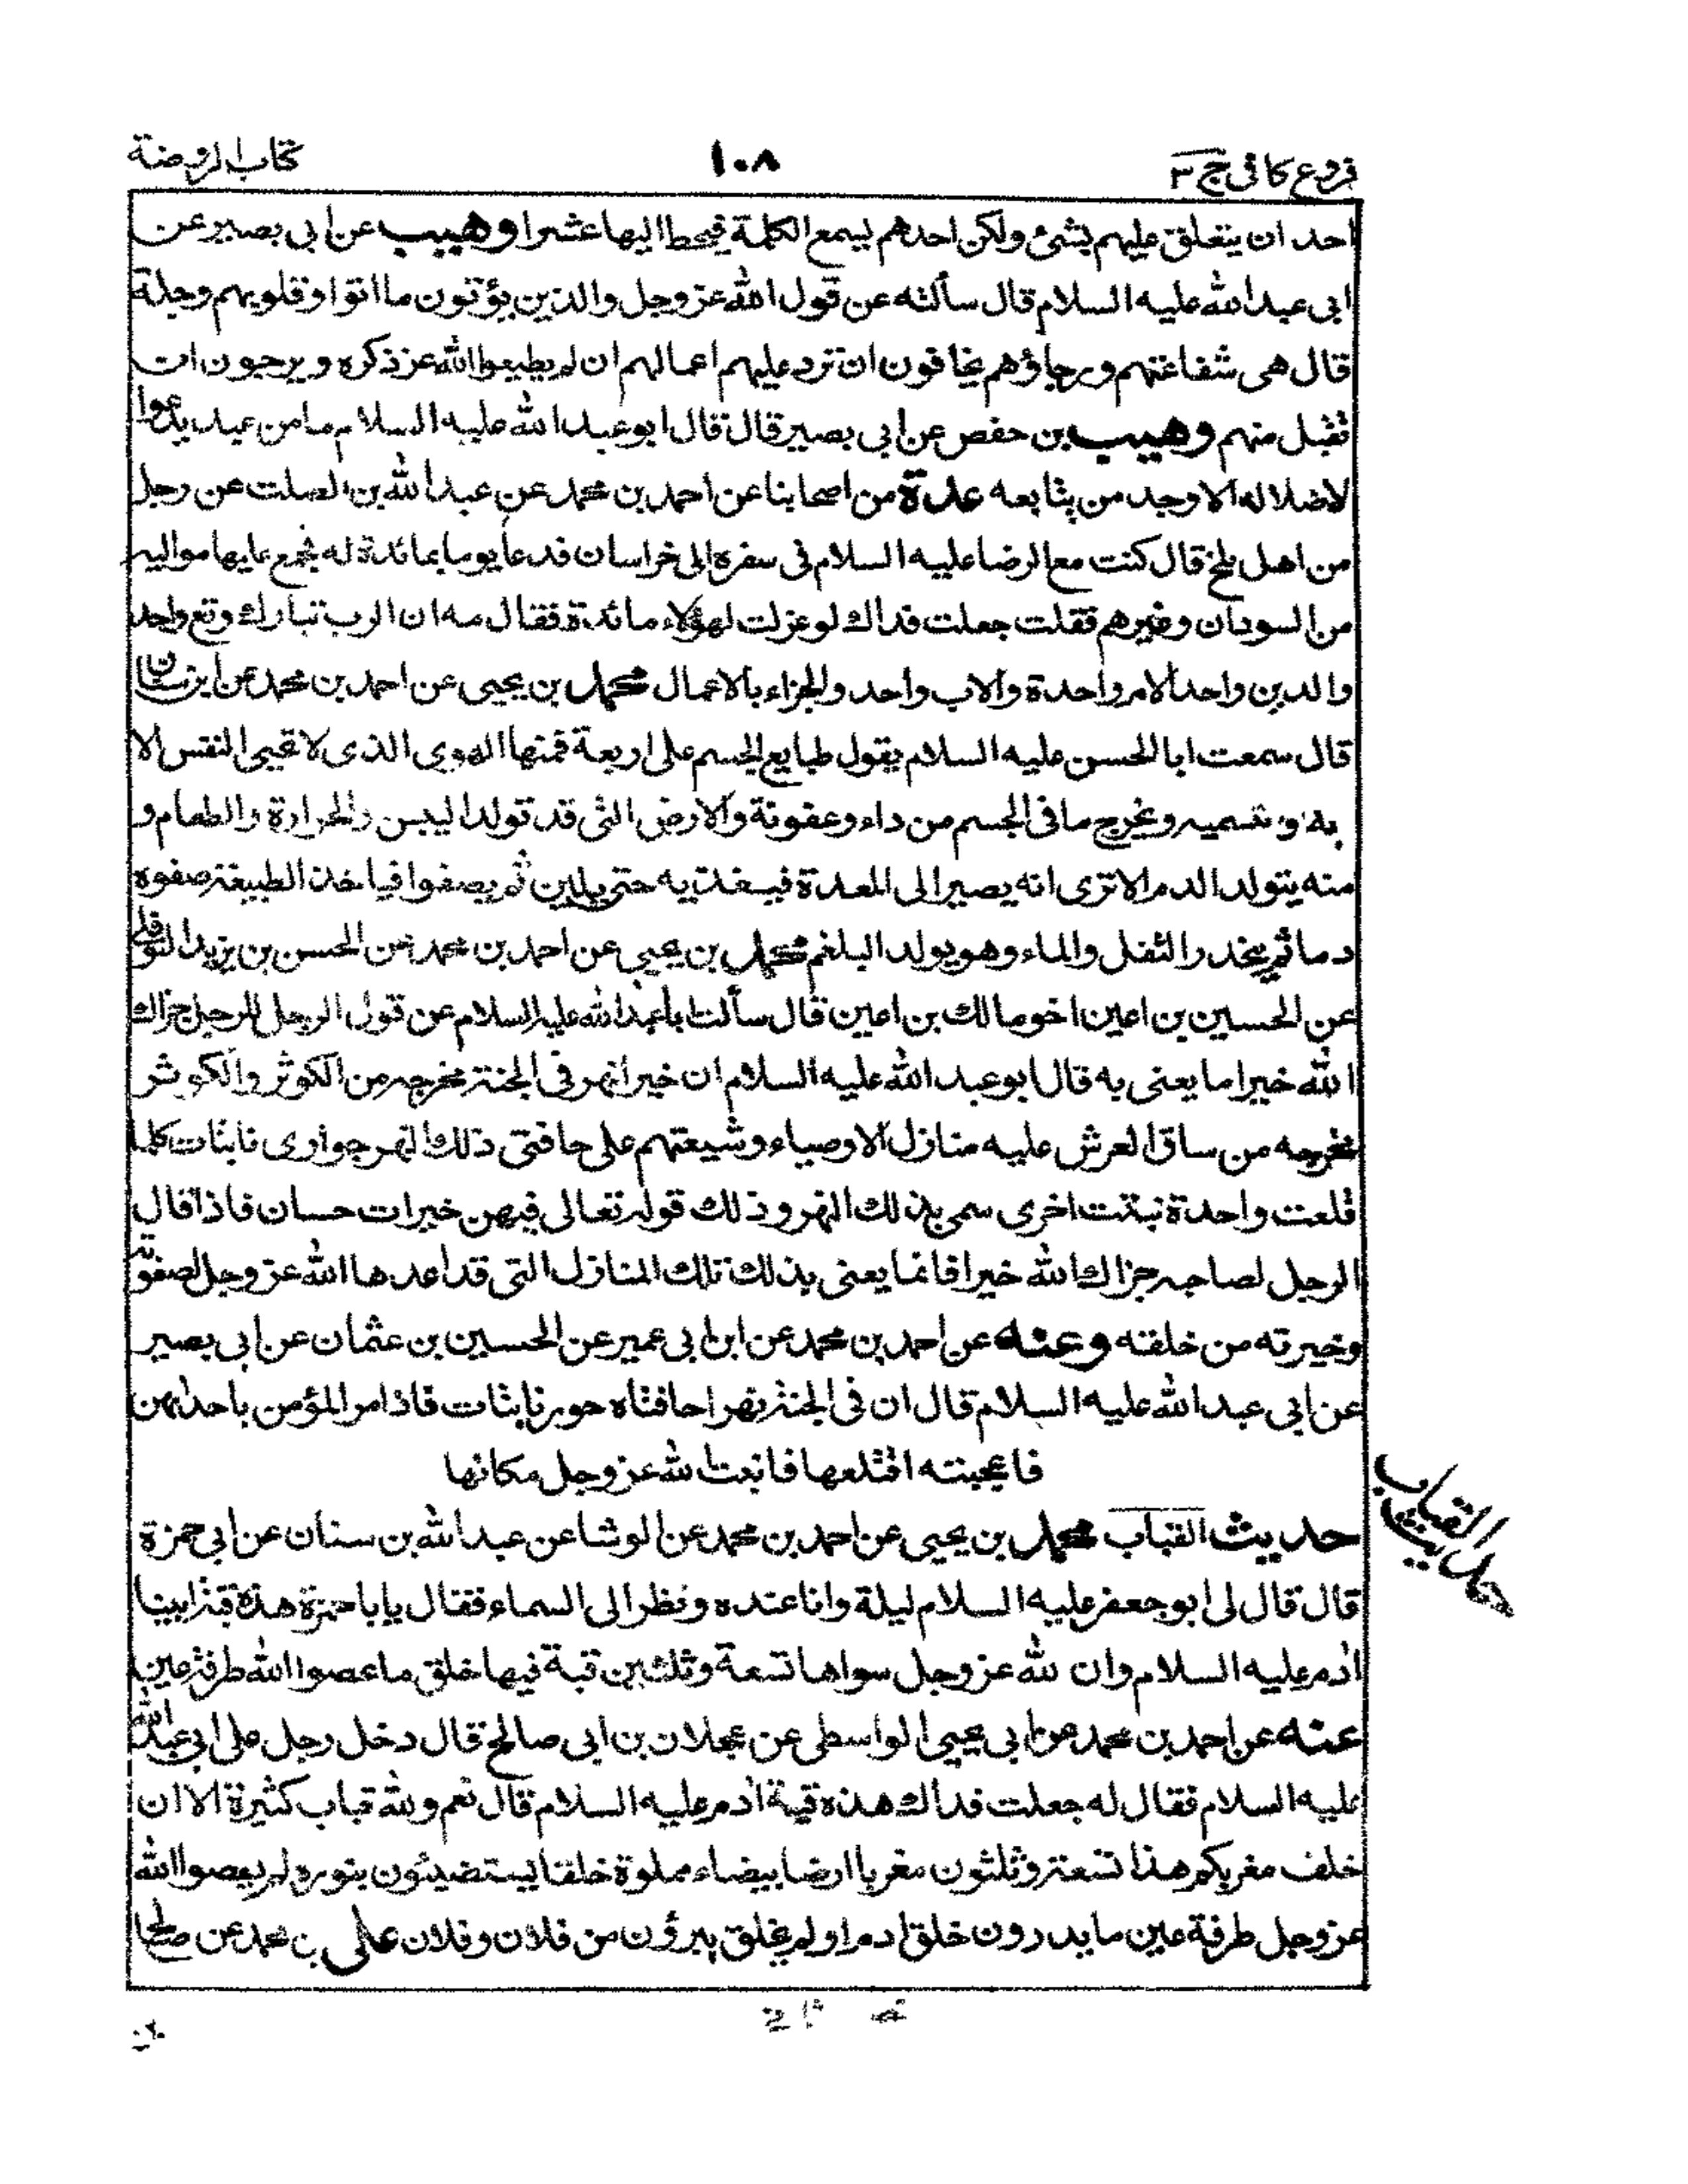 فروع كافى ج ٣
١٠٨
كتاب الروضة
احد ان يتعلق عليهم بشئ ولكن احدهم ليسمع الكلمة فيحط اليها عشرا وهيب عن ابى بصير عن
ابى عبد الله عليه السلام قال سألته عن قول الله عز وجل والذين يؤتون ما اتوا وقلوبهم وجلة
قال هى شفاعتهم ورجاؤهم يخافون ان ترد عليهم اعمالهم ان لم يطيعوا الله عز ذكره ويرجون ان
تقبل منهم وهيب بن حفص عن ابى بصير قال قال ابو عبد الله عليه السلام ما من عبد يدعوا
لا ضلاله الا وجد من يتابعه عدة من اصحابنا عن احمد بن محمد عن عبد الله بن الصلت عن رجل
من اهل بلخ قال كنت مع الرضا عليه السلام فى سفره الى خراسان فدعا يوما بمائدة له فجمع عليها مواليه
من السودان وغيرهم فقلت جعلت فداك لو عزلت لهؤلاء مائدة فقال مه ان الرب تبارك وتع واحد
والدين واحد الام واحدة والاب واحد والجزاء بالاعمال محمد بن يحيى عن احمد بن محمد عن ابن سنان
قال سمعت ابا الحسن عليه السلام يقول طبايع الجسم على اربعة فمنها الهوى الذى لا تحيى النفس الا
به و شميه ويخرج ما فى الجسم من داء وعفونة والارض التى قد تولد اليبس والحرارة والطعام و
منه يتولد الدم الا ترى انه يصير الى المعدة فيغذيه حتى يلين ثم يصفوا فياخذ الطبيعة صفوه
دما ثم ينحدر الثفل والماء وهو يولد البلغم محمد بن يحيى عن احمد بن محمد عن الحسن بن يزيد النوفلى
عن الحسين بن اعين اخو مالك بن اعين قال سألت ابا عبد الله عليه السلام عن قول الرجل للرجل جزاك
الله خيرا ما يعنى به قال ابو عبد الله عليه السلام ان خيرا نهر فى الجنة مخرجه من الكوثر والكوثر
مخرجه من ساق العرش عليه منازل الاوصياء وشيعتهم على حافتى ذلك النهر جوارى نابتات كلما
قلعت واحدة نبتت اخرى سمى بذلك النهر وذلك قوله تعالى فيهن خيرات حسان فاذا قال
الرجل لصاحبه جزاك الله خيرا فانما يعنى بذلك تلك المنازل التى قد اعدها الله عز وجل لصفوته
وخيرته من خلقه وعنه عن احمد بن محمد عن ابن ابى عمير عن الحسين بن عثمان عن ابى بصير
عن ابى عبد الله عليه السلام قال ان فى الجنة نهرا حافتاه حور نابتات فاذا مر المؤمن باحدٰيهن
فاعجبته اقتلعها فانبت الله عز وجل مكانها
حديث القباب
حديث القباب محمد بن يحيى عن احمد بن محمد عن الوشا عن عبد الله بن سنان عن ابى حمزة
قال قال لى ابو جعفر عليه السلام ليلة وانا عنده ونظر الى السماء فقال يابا حمزة هذه قبة ابينا
ادم عليه السلام وان لله عز وجل سواها تسعة وثلثين قبة فيها خلق ما عصوا الله طرفة عين
عنه عن احمد بن محمد عن ابى يحيى الواسطى عن عجلان بن ابى صالح قال دخل رجل على ابى عبد الله
عليه السلام فقال له جعلت فداك هذه قبة ادم عليه السلام قال نعم ولله قباب كثيرة الا ان
خلف مغربكم هذا تسعة وثلثون مغربا ارضا بيضاء مملوة خلقا يستضيئون بنوره لم يعصوا الله
عز وجل طرفة عين ما يدرون خلق ادم او لم يخلق يبرؤن من فلان وفلان على بن محمد عن صالح